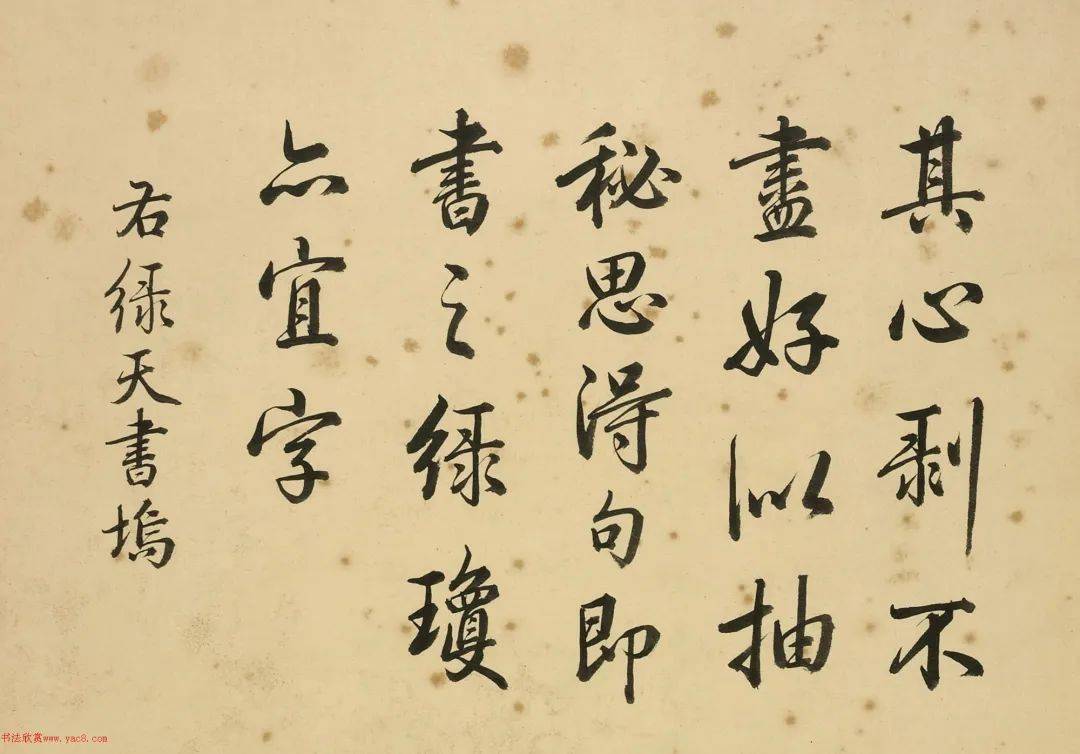 其心剥不
盡好似抽
秘思得句即
書之緑瓊
亦宜字
右緑天書塢
书法欣赏www.yac8.com